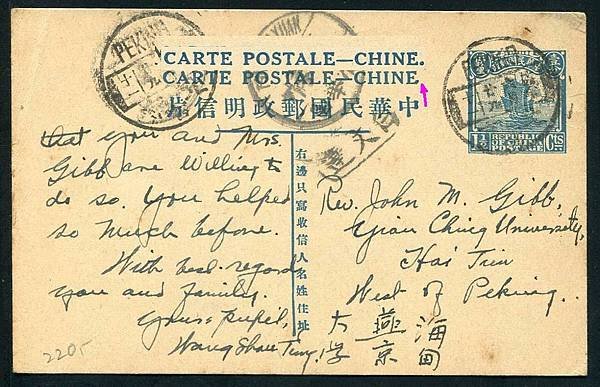 PEKING
CARTE POSTALE—CHINE.
CARTE POSTALE—CHINE.
片信明政郵國民華中
1½ REPUBLIC OF CHINA POSTAGE Cts
that you and Mrs.
Gibb are willing to
do so. You helped
so much before.
With best regard
you and family.
Yours pupil,
Wang Shou Ting.
右邊只寫收信人名姓住址
Rev. John M. Gibb,
Yian Ching University,
Hai Tien
West of Peking.
海甸
燕京
大学
2205